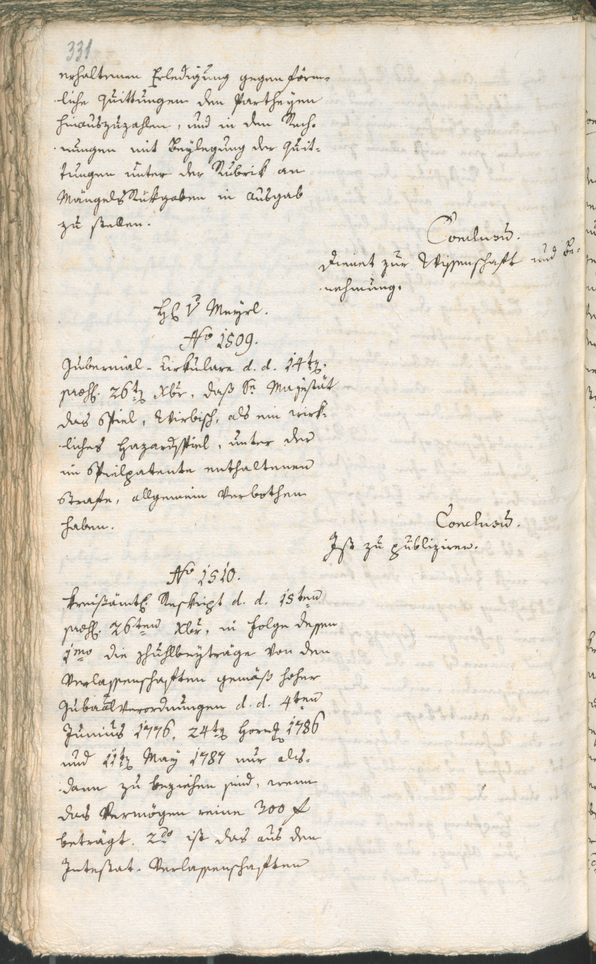 331
erhaltenen Erledigung gegen förm-
liche Quittungen den Partheyen
hinauszuzahlen, und in den Rech-
nungen mit Beylegung der Quit-
tungen unter der Rubrik an
Mängels Rükgaben in Ausgab
zu stellen.
Conclusū.
Dienet zur Wissenschaft und Be-
nehmung.
H: v Mayrl.
No 1509.
Gubernial-Cirkulare d. d. 14tn
praes. 26tn Xbr, daß Se Majestät
das Spiel, Zwirbisch, als ein wirk-
liches Hazardspiel, unter der
im Spielpatente enthaltenen
Strafe, allgemein verbothen
haben.
Conclusū.
Ist zu publiziren.
No 1510.
Kreisämtl. Reskript d. d. 15ten
praes. 26ten Xbr, in Folge dessen
1mo die Schuhlbeyträge von den
Verlassenschaften gemäß hoher
Gubaalverordnungen d. d. 4ten
Junius 1776, 24tn Horng 1786
und 11tn May 1787 nur als-
dann zu beziehen sind, wenn
das Vermögen reine 300 f
beträgt. 2do ist das aus den
Intestat-Verlassenschaften